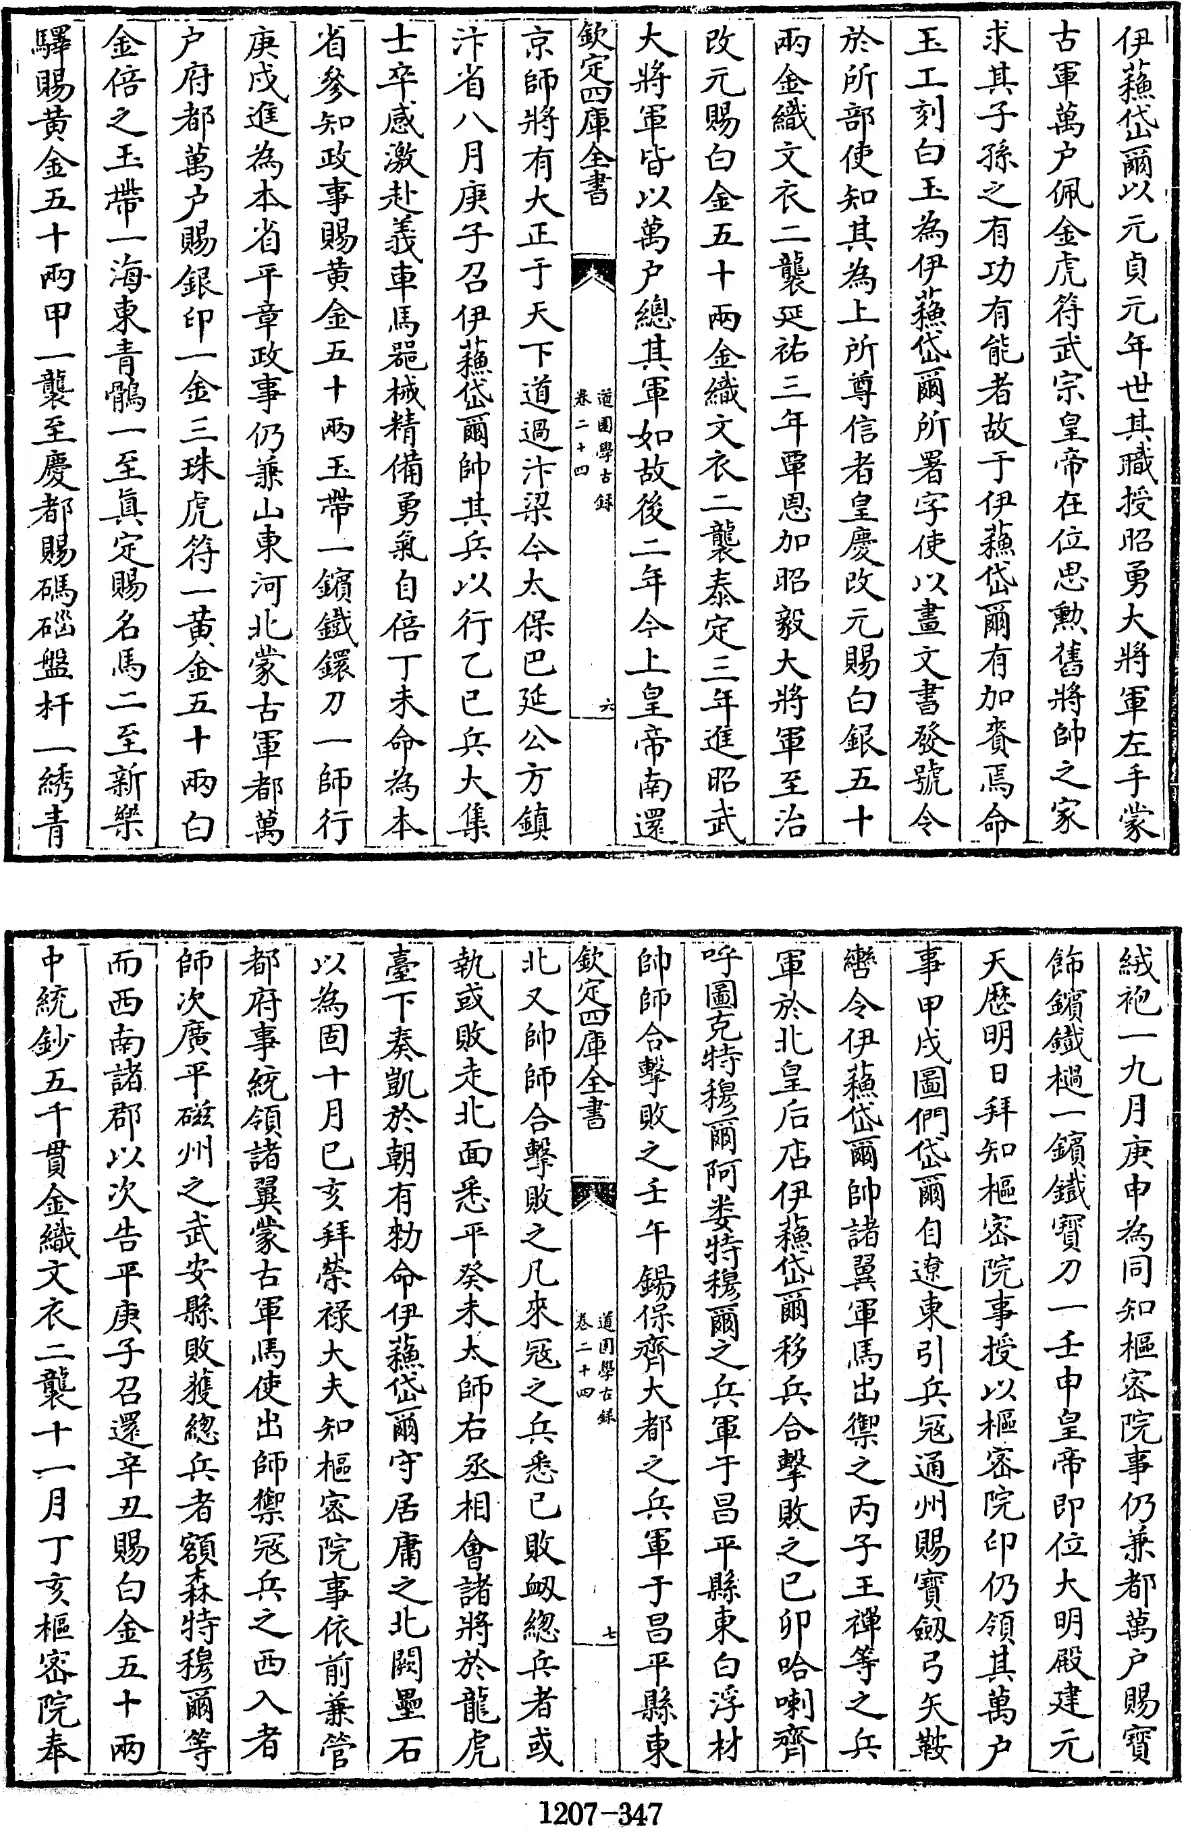 伊蘓岱爾以元貞元年世其職授昭勇大將軍左手蒙
古軍萬户佩金虎符武宗皇帝在位思勲舊將帥之家
求其子孫之有功有能者故于伊蘓岱爾有加賚焉命
玉工刻白玉為伊蘓岱爾所署字使以畫文書發號令
於所部使知其為上所尊信者皇慶改元賜白銀五十
兩金織文衣二襲延祐三年覃恩加昭毅大將軍至治
改元賜白金五十兩金織文衣二襲泰定三年進昭武
大將軍皆以萬户總其軍如故後二年今上皇帝南還
欽定四庫全書
道園學古録
卷二十四
六
京師將有大正于天下道過汴梁今太保巴延公方鎮
汴省八月庚子召伊蘓岱爾帥其兵以行乙巳兵大集
士卒感激赴義車馬噐械精備勇氣自倍丁未命為本
省參知政事賜黄金五十兩玉帶一鑌鐵鐶刀一師行
庚戌進為本省平章政事仍兼山東河北蒙古軍都萬
户府都萬户賜銀印一金三珠虎符一黄金五十兩白
金倍之玉帶一海東青鶻一至真定賜名馬二至新樂
驛賜黄金五十兩甲一襲至慶都賜碼碯盤杆一綉青
絨袍一九月庚申為同知樞密院事仍兼都萬户賜寶
飾鑌鐵檛一鑌鐵寶刀一壬申皇帝即位大明殿建元
天厯明日拜知樞密院事授以樞密院印仍領其萬户
事甲戌圖們岱爾自遼東引兵冦通州賜寶劔弓矢鞍
轡令伊蘓岱爾帥諸翼軍馬出禦之丙子王禪等之兵
軍於北皇后店伊蘓岱爾移兵合擊敗之已卯哈喇齊
呼圖克特穆爾阿婁特穆爾之兵軍于昌平縣東白浮村
帥師合擊敗之壬午錫保齊大都之兵軍于昌平縣東
欽定四庫全書
道園學古録
卷二十四
七
北又帥師合擊敗之凡來冦之兵悉已敗衂總兵者或
執或敗走北面悉平癸未太師右丞相會諸將於龍虎
臺下奏凱於朝有勅命伊蘓岱爾守居庸之北闕壘石
以為固十月已亥拜榮禄大夫知樞密院事依前兼管
都府事統領諸翼蒙古軍馬使出師禦冦兵之西入者
師次廣平磁州之武安縣敗獲總兵者額森特穆爾等
而西南諸郡以次告平庚子召還辛丑賜白金五十兩
中統鈔五千貫金織文衣二襲十一月丁亥樞密院奉
1207-347